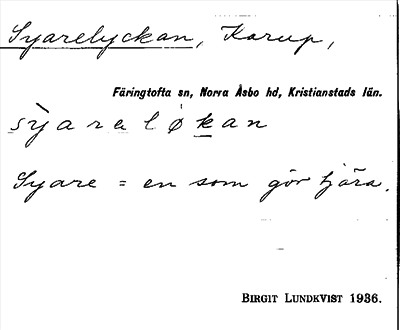 Syarelyckan, Karup,
Färingtofta sn, Norra Åsbo hd, Kristianstads län.
sỳarɘløkan
Syare = en som gör tjära.
BIRGIT LUNDKVIST 1936.